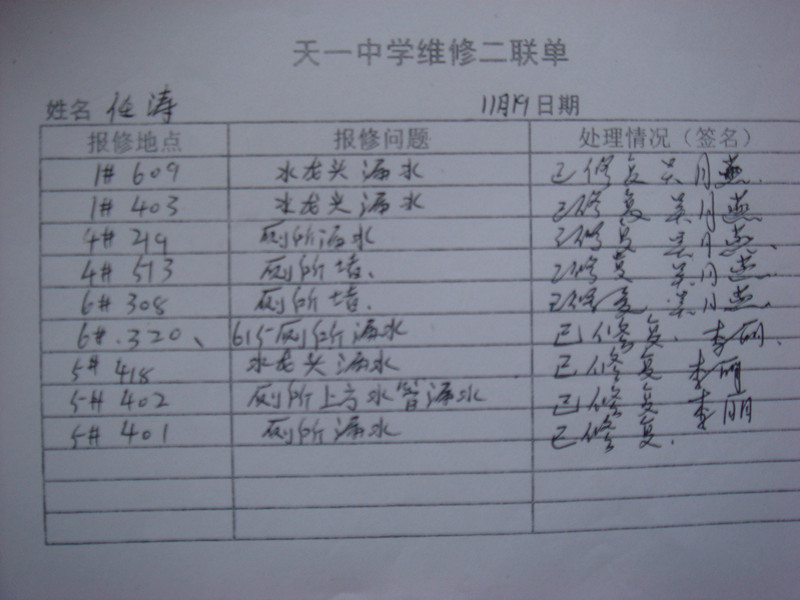 天一中学维修二联单
姓名 任涛 11月19日期
报修地点 报修问题 处理情况（签名）
1# 609 水龙头漏水 已修复 吴月燕
1# 403 水龙头漏水 已修复 吴月燕
4# 219 厕所漏水 已修复 吴月燕
4# 513 厕所堵、 已修复 吴月燕
6# 308 厕所堵. 已修复 吴月燕
6#.320、 615厕所漏水 已修复. 李丽.
5# 418 水龙头漏水 已修复 李丽
5# 402 厕所上方水管漏水 已修复 李丽
5# 401 厕所漏水 已修复.